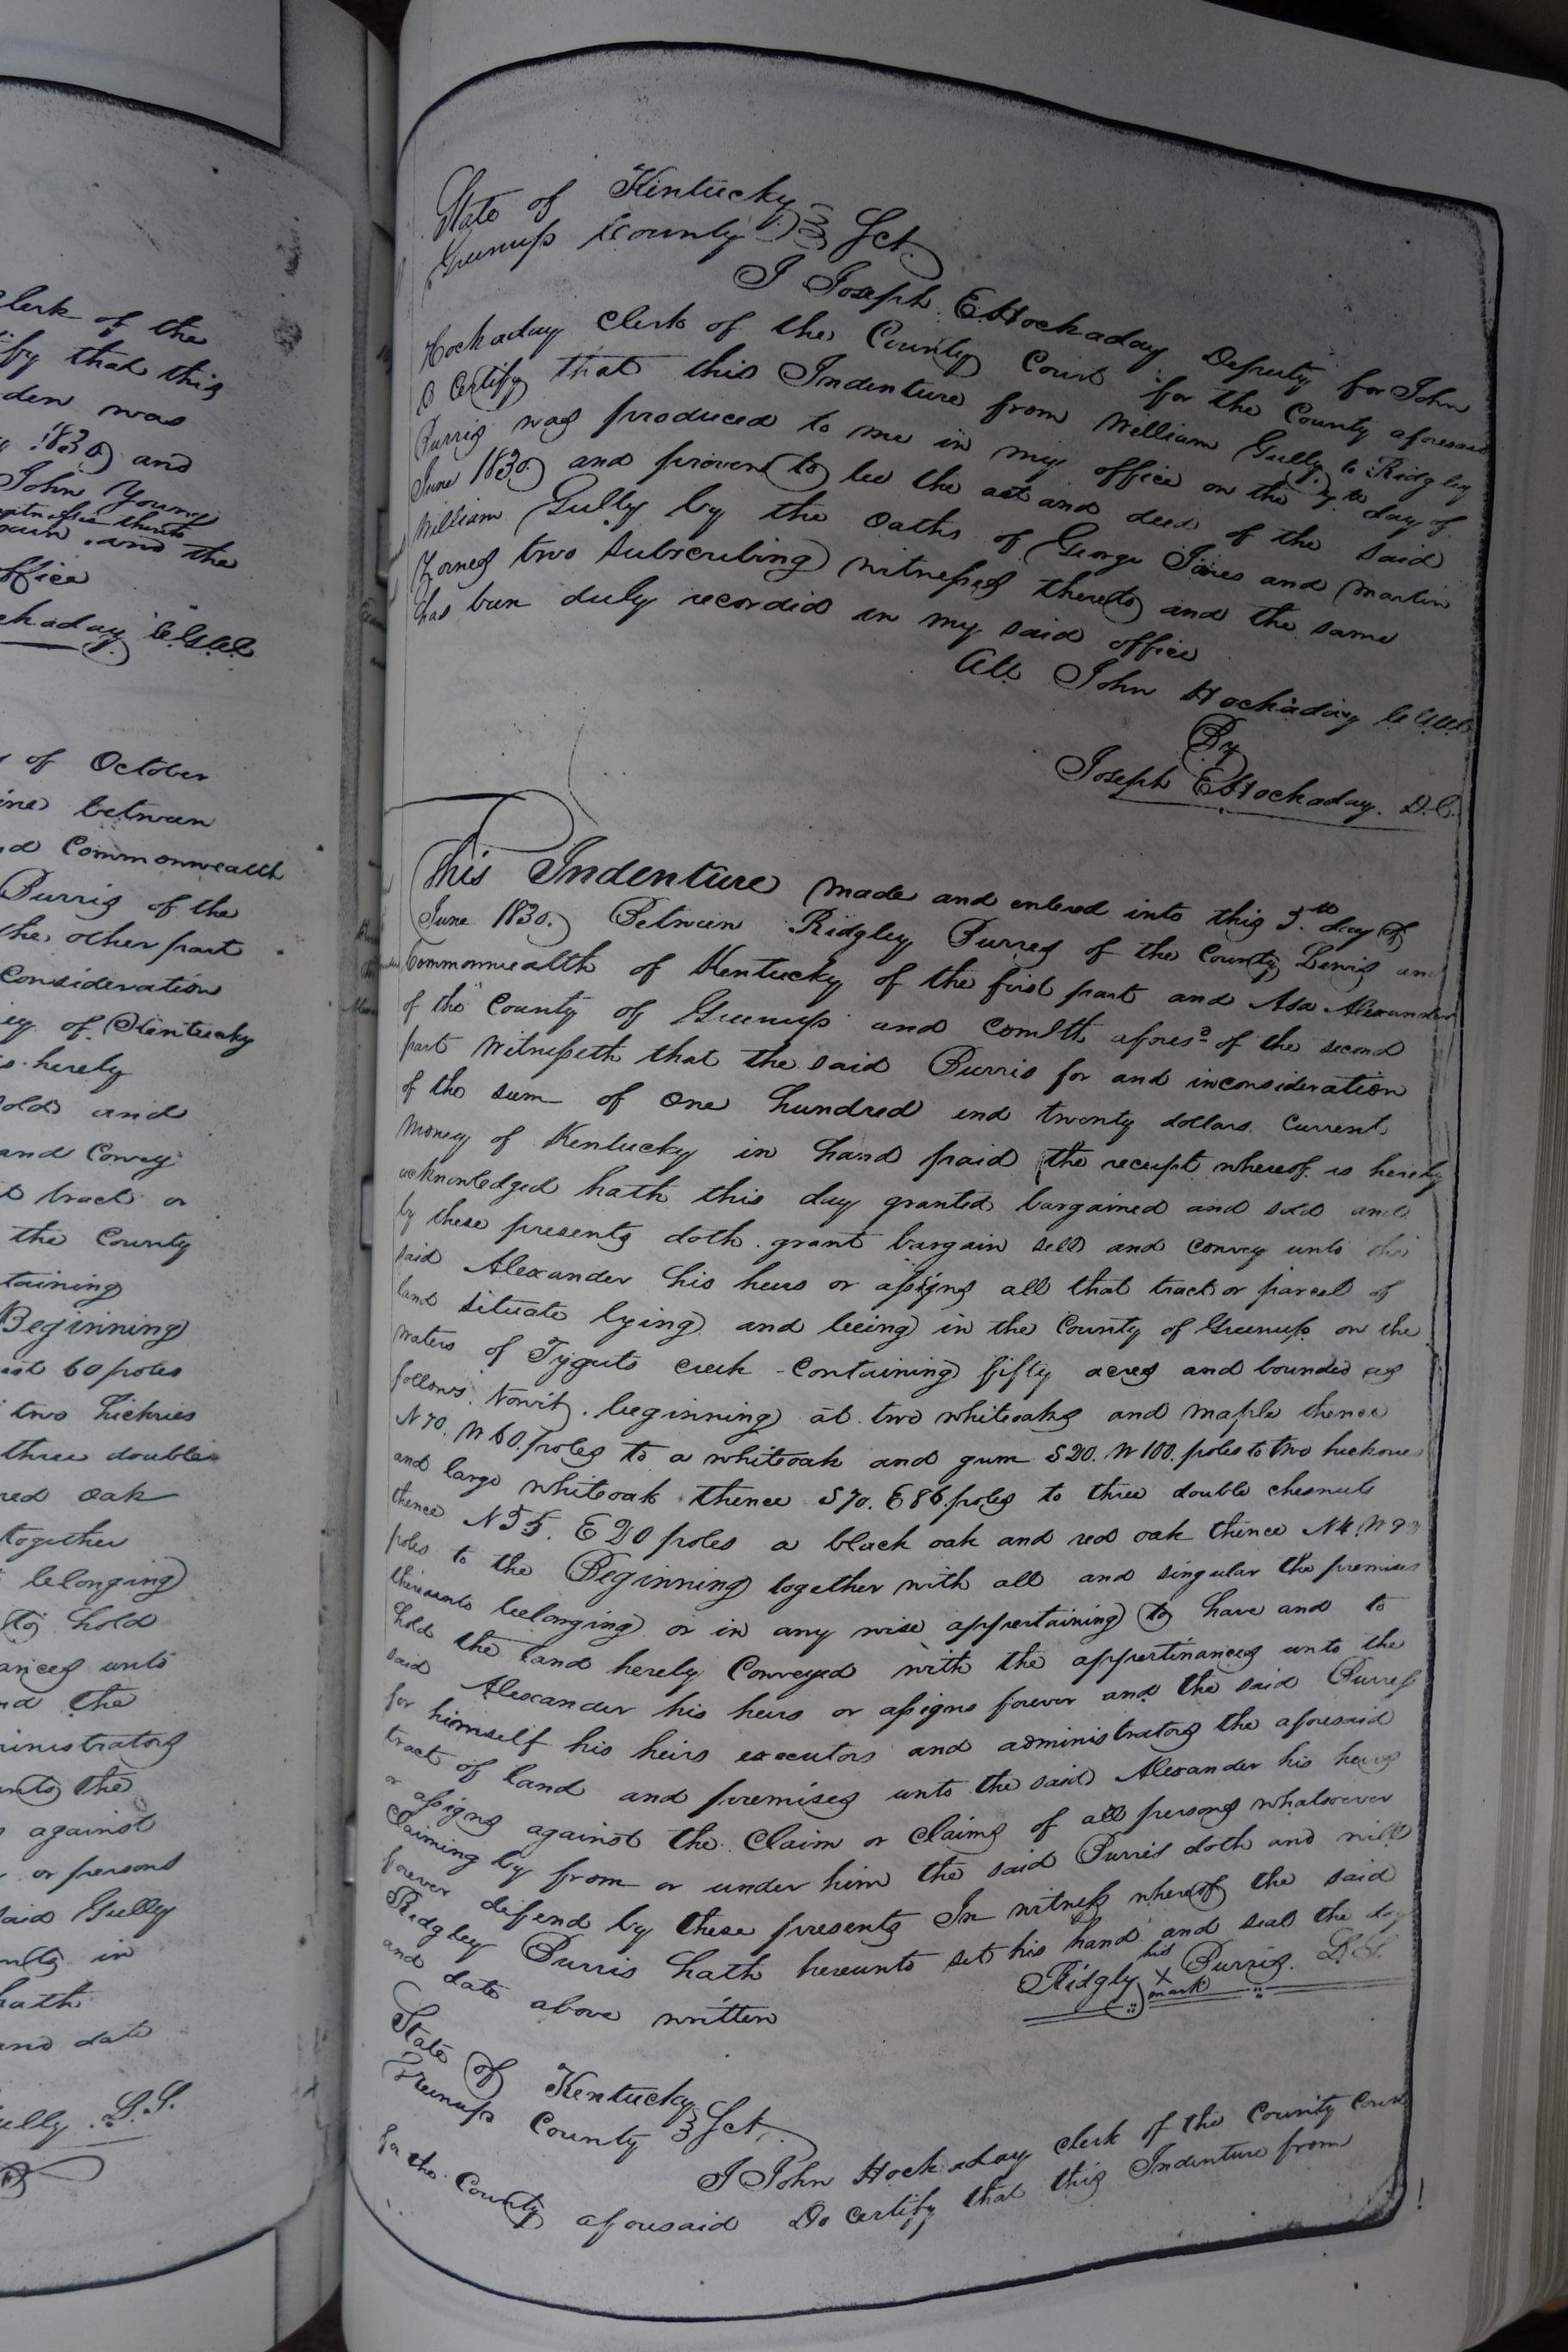 clerk of the
ify that this
den was
1830 and
John Young
witnesses thereto
and the
office
ckaday
of October
between
d Commonwealth
Purris of the
the other part
Consideration
of Kentucky
s hereby
sold and
and Convey
t tract or
the County
taining
Beginning
60 poles
two hickries
three double
red oak
together
belonging
to hold
ances unto
nd the
ministrators
unto the
against
or persons
said Gully
in
hath
and date
ully L.S.
State of Kentucky
Greenup County Sct.
I Joseph E Hockaday Deputy for John
Hockaday Clerk of the County Court for the County aforesaid
D Certify that this Indenture from William Gully to Ridgley
Purris was produced to me in my office on the day of
June 1830 and proven to bee the act and deed of the said
William Gully by the oaths of George and Martin
two subscribing witnesses thereto and the same
has bun duly recordid in my said office
Att John Hockaday
By
Joseph E Hockaday. D.C.
This Indenture made and entered into this day of
June 1830. Between Ridgley Purres of the County Lewis and
Commonwealth of Kentucky of the first part and Asa Alexander
of the County of Greenup and Comlth afores.d of the second
part Witnesseth that the said Purris for and inconsideration
of the sum of one hundred end twenty dollars Current
money of Kentucky in hand paid the receipt whereof is hereby
acknowledged hath this day granted bargained and sold and
by these presents doth grant bargain sell and convey unto the
said Alexander his heirs or assigns all that tract or parcel of
land situate lying and beeing in the County of Greenup on the
waters of Tyguts creek Containing fifty acres and bounded as
follows. Towit. beginning at two whiteoaks and maple thence
N 70. W 60. poles to a whiteoak and gum S 20. W 100. poles to two hickories
and large whiteoak thence S 70. E 86 poles to three double chesnuts
thence N 55. E 20 poles a black oak and red oak thence N 4 W
poles to the Beginning together with all and singular the premises
thereunto belonging or in any wise appertaining to have and to
hold the land hereby Conveyed with the appertinances unto the
said Alexander his heirs or assigns forever and the said Purress
for himself his heirs executors and administrators the aforesaid
tract of land and premises unto the said Alexander his heirs
or assigns against the Claim or Claims of all persons whatsoever
Claiming by from or under him the said Purris doth and will
forever defend by these presents In witness whereof the said
Ridgley Purris hath hereunto set his hand and seal the day
and date above written
Ridgly his x mark Purris. L.S.
State of Kentucky
Greenup County Sct.
I John Hockaday clerk of the County Court
for the County aforesaid Do Certify that this Indenture from